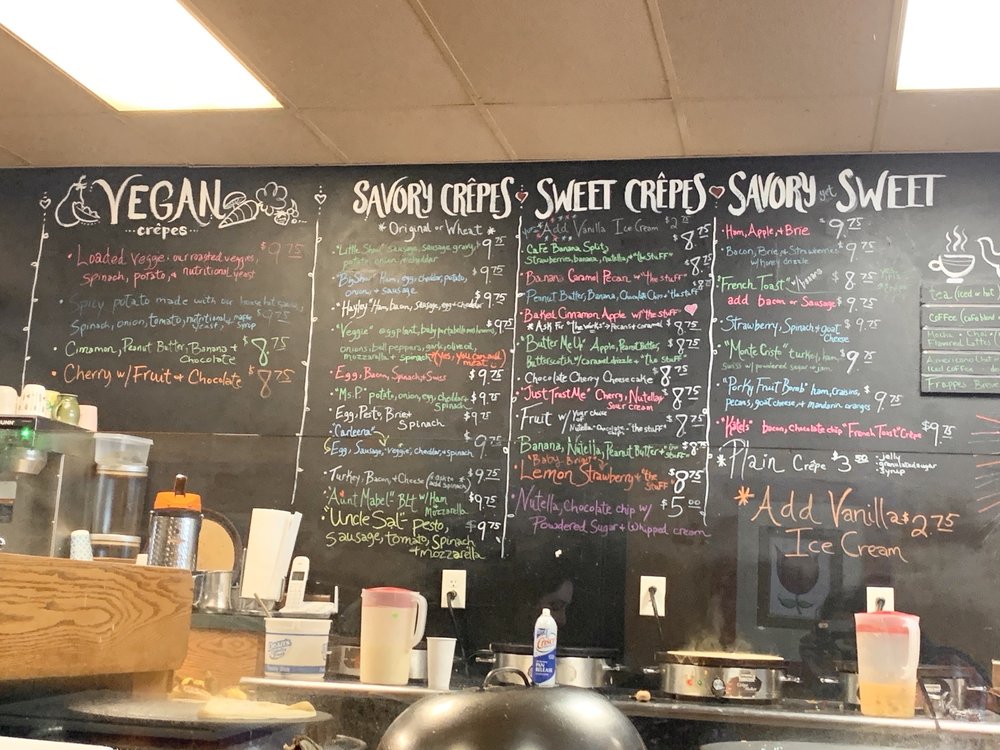 VEGAN
crêpes
• Loaded Veggie: our roasted veggies, $9.75
spinach, potato, & nutritional yeast
• Spicy potato made with our house hot
spinach, onion, tomato, nutritional yeast, + maple syrup
• Cinnamon, Peanut Butter, Banana + Chocolate $8.75
• Cherry w/ Fruit + Chocolate $8.75
SAVORY CRÊPES
* Original or Wheat *
sausage, sausage gravy, 9.75
potato, onion, cheddar
Ham, egg, cheddar, potato, 9.75
onion, + sausage
"Hayley" Ham, bacon, sausage, egg + cheddar $9.75
"Veggie" eggplant, baby portabello mushrooms, $9.75
onions, bell peppers, garlic, olive oil,
mozzarella + spinach (Yes, you can add meat)
• Egg, Bacon, Spinach + Swiss $9.75
• "Ms. P" potato, onion, egg, cheddar, spinach $9.75
• Egg, Pesto, Brie + Spinach $9.75
"Carleera"
Egg, Sausage, "veggie", cheddar, + spinach 9.75
• Turkey, Bacon, + Cheese (* ask to add spinach) $9.75
• "Aunt Mabel" BLT w/ Ham + Mozzarella $9.75
• "Uncle Sal" pesto, $9.75
sausage, tomato, Spinach
+ mozzarella
SWEET CRÊPES
Add Vanilla Ice Cream $2.75
Café Banana Split, $8.75
Strawberries, banana, nutella, + "the stuff"
• Banana Caramel Pecan w/ "the stuff" 8.75
• Peanut Butter, Banana, Chocolate Chip + the stuff $8.75
• Baked Cinnamon Apple w/ "the stuff"
* Ask For "the works" → Pecans + caramel 8.75
• "Butter Me Up" Apple, Peanut Butter, $8.75
Butterscotch w/ caramel drizzle + "the stuff"
• Chocolate Cherry Cheesecake 8.75
• "Just Trust Me" Cherry, Nutella + Sour cream $8.75
• Fruit w/ Your choice of Nutella, Chocolate chips "the stuff" $8.75
• Banana, Nutella, Peanut Butter + the stuff $8.75
"Baby Bright"
Lemon Strawberry + "the stuff" $8.75
• Nutella, Chocolate chip w/ $5.00
Powdered Sugar + Whipped cream
SAVORY yet SWEET
• Ham, Apple, + Brie 9.75
• Bacon, Brie, + Strawberries $9.75
w/ honey drizzle
• "French Toast" w/ $8.75
add bacon or Sausage $9.75
• Strawberry, Spinach + goat Cheese $9.75
• "Monte Cristo" turkey, ham, $9.75
swiss w/ powdered sugar + jam
• "Porky Fruit Bomb" ham, craisins, $9.75
pecans, goat cheese, + mandarin oranges
• "Kate's" bacon, chocolate chip "French Toast" Crêpe $9.75
* Plain Crêpe $3.50 • jelly
• granulated sugar
• syrup
* Add Vanilla $2.75
Ice Cream
tea (iced or hot)
Coffee
Mocha + Chai
Flavored Lattes
Americano
Iced coffee
Frappes